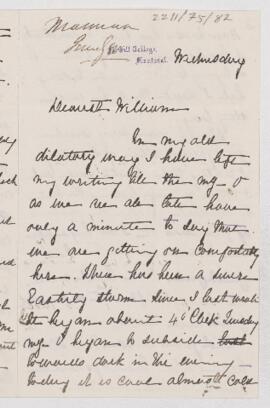 2211/75/82
McGill College,
Montreal.
Wednesday
Dearest William
In my old
dilatory way I have left
my writing till the
as we are late have
only a minute to say that
we are getting on comfortably
here. There has been a severe
Easterly storm since I last wrote
It began about 4 o'Clock Tuesday
& began to subside
towards dark in the evening
today it is cool almost cold